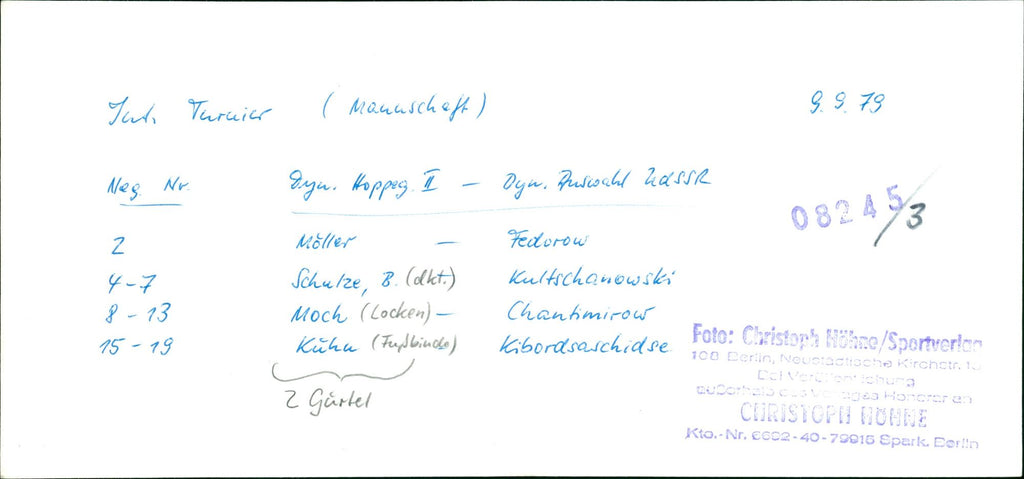 Int. Turnier (Mannschaft) 9.9.79
Neg. Nr. Dyn. Hoppeg. II – Dyn. Auswahl UdSSR
08245/3
2 Möller – Fedorow
4-7 Schulze, B. (dkl.) Kultschanowski
8-13 Moch (Locken) – Chantimirow
15-19 Kühn (Fußbinde) Kibordsaschidse
2 Gürtel
Foto: Christoph Höhne/Sportverlag
108 Berlin, Neustädtische Kirchstr. 15
Bei Veröffentlichung
außerhalb des Verlages Honorar an
CHRISTOPH HÖHNE
Kto.-Nr. 6692-40-79915 Spark. Berlin